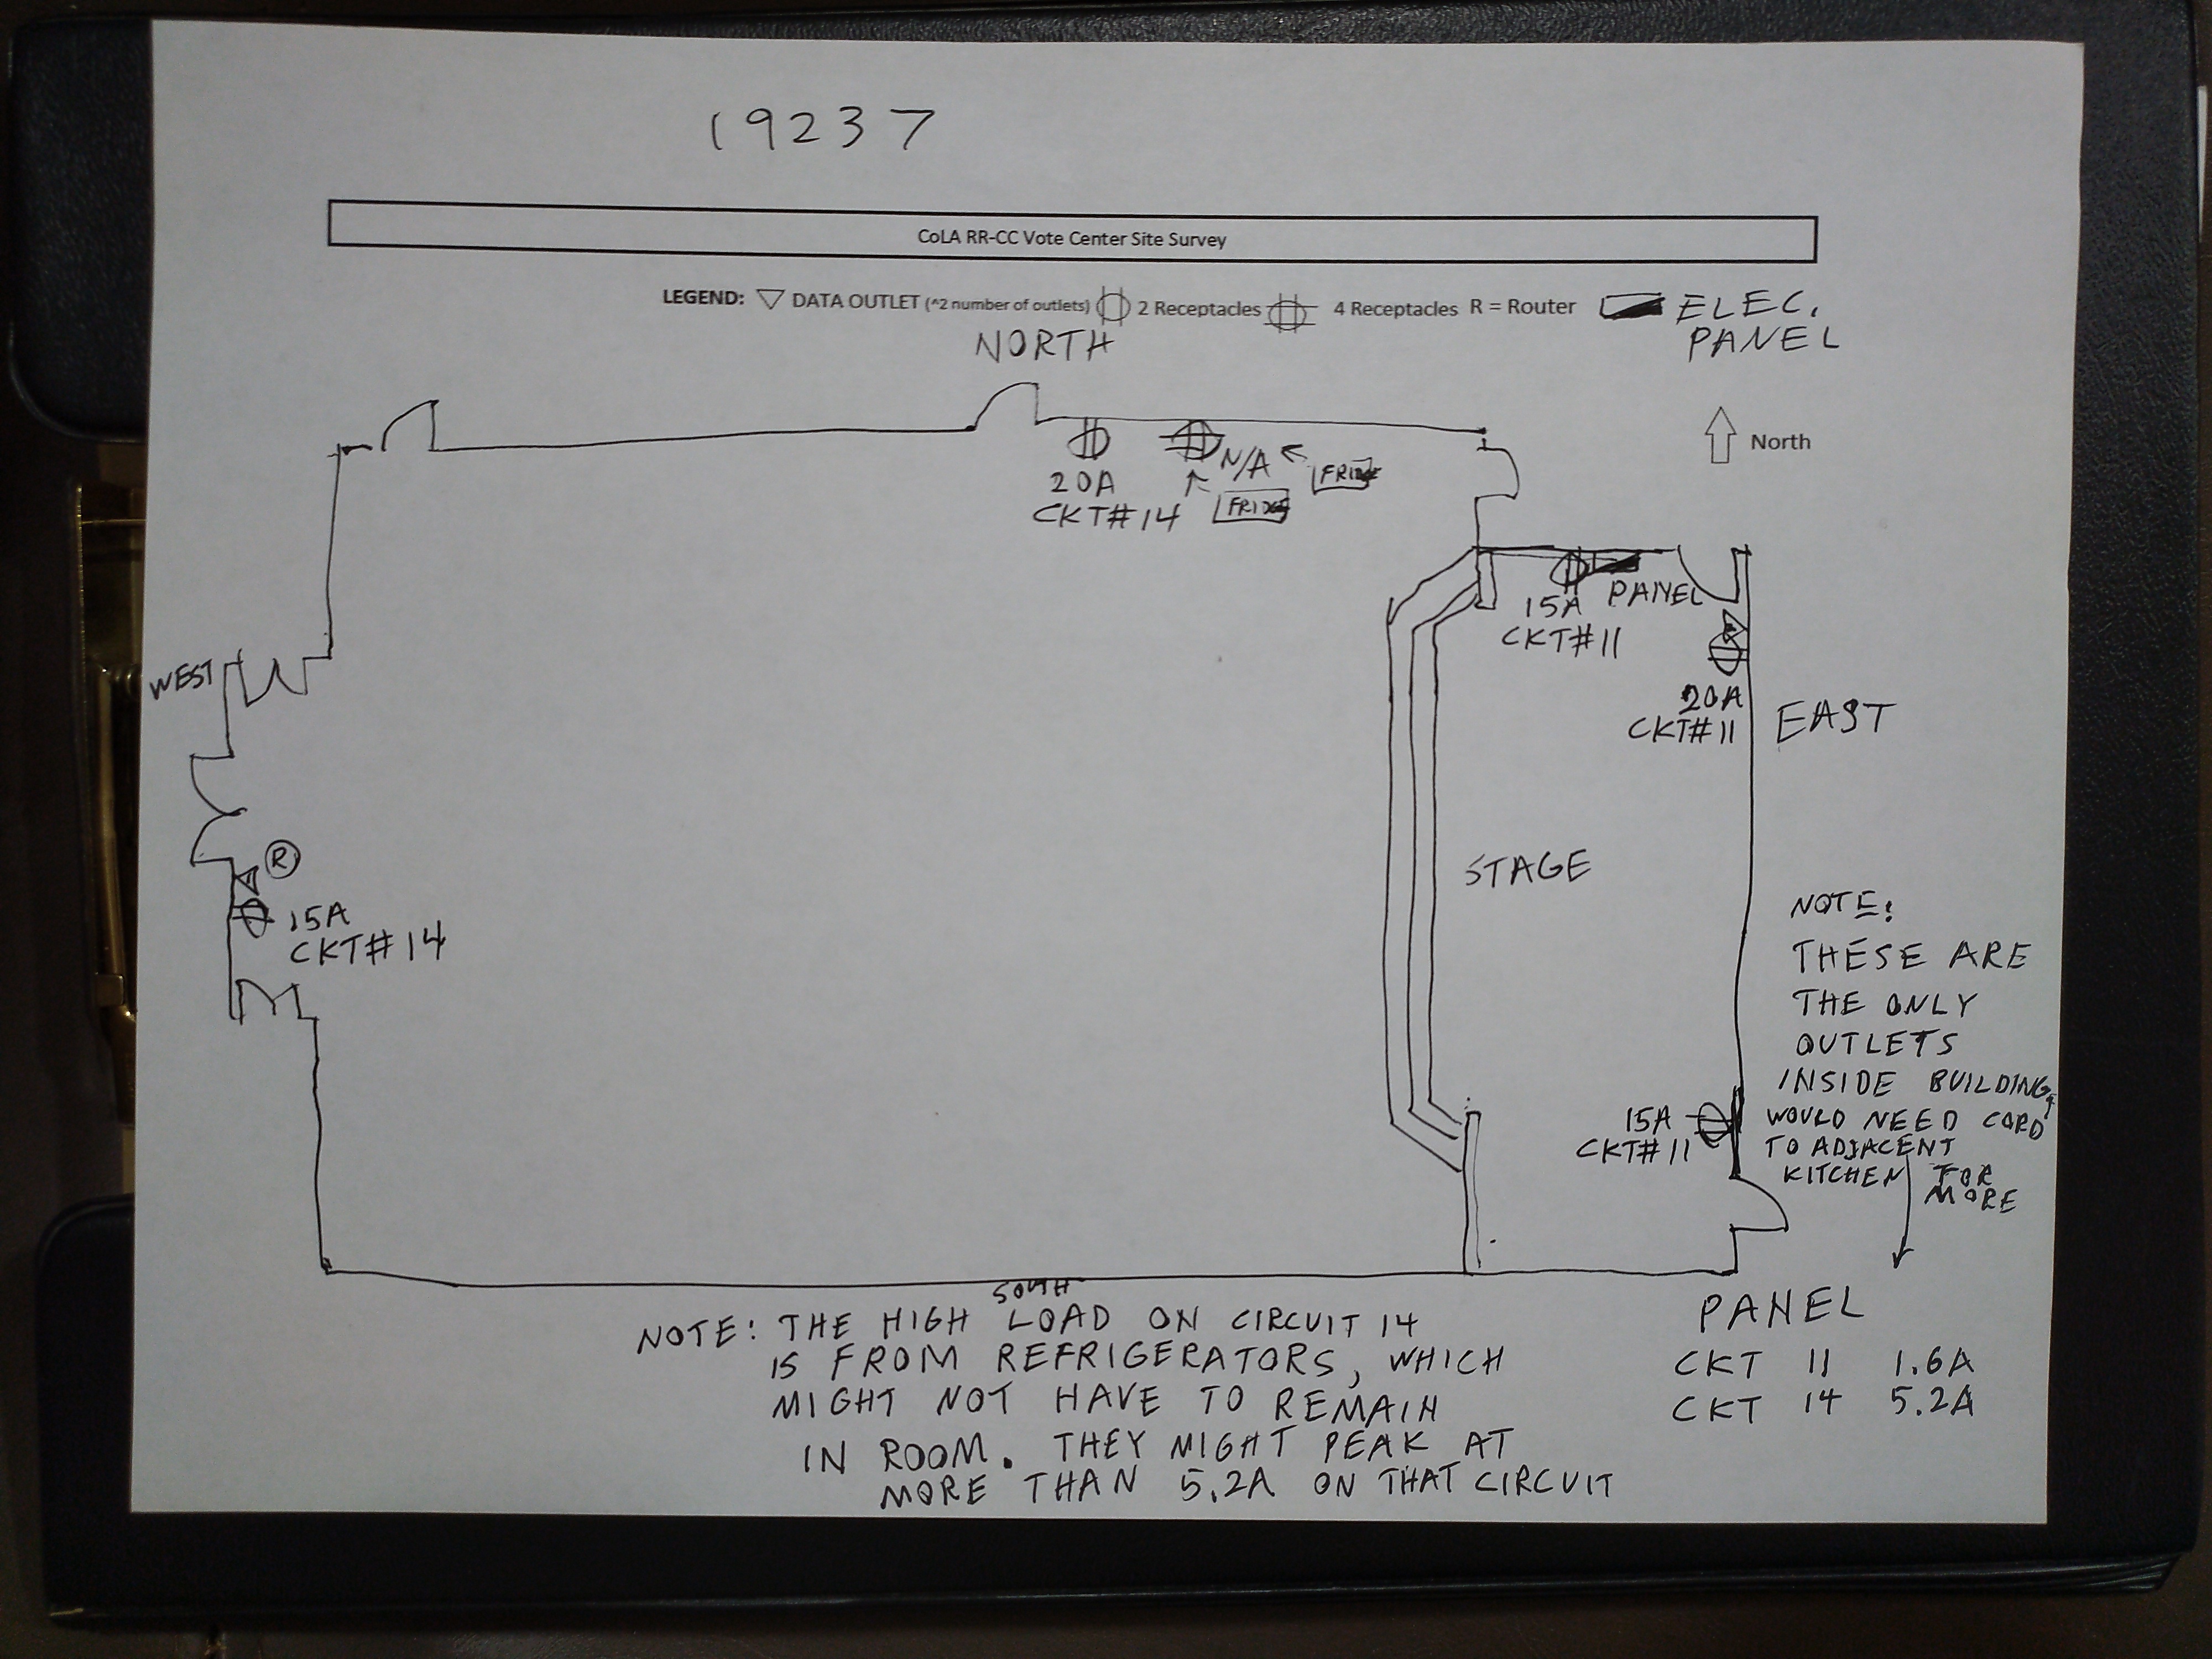 19237
CoLA RR-CC Vote Center Site Survey
LEGEND: DATA OUTLET (^2 number of outlets) 2 Receptacles 4 Receptacles R = Router ELEC. PANEL
NORTH
North
20A
CKT#14
N/A
FRIDGE
FRIDGE
15A
CKT#11
PANEL
WEST
20A
CKT#11
EAST
R
15A
CKT#14
STAGE
NOTE:
THESE ARE
THE ONLY
OUTLETS
INSIDE BUILDING,
WOULD NEED CORD
TO ADJACENT
KITCHEN FOR
MORE
15A
CKT#11
SOUTH
NOTE: THE HIGH LOAD ON CIRCUIT 14
IS FROM REFRIGERATORS, WHICH
MIGHT NOT HAVE TO REMAIN
IN ROOM. THEY MIGHT PEAK AT
MORE THAN 5.2A ON THAT CIRCUIT
PANEL
CKT 11 1.6A
CKT 14 5.2A